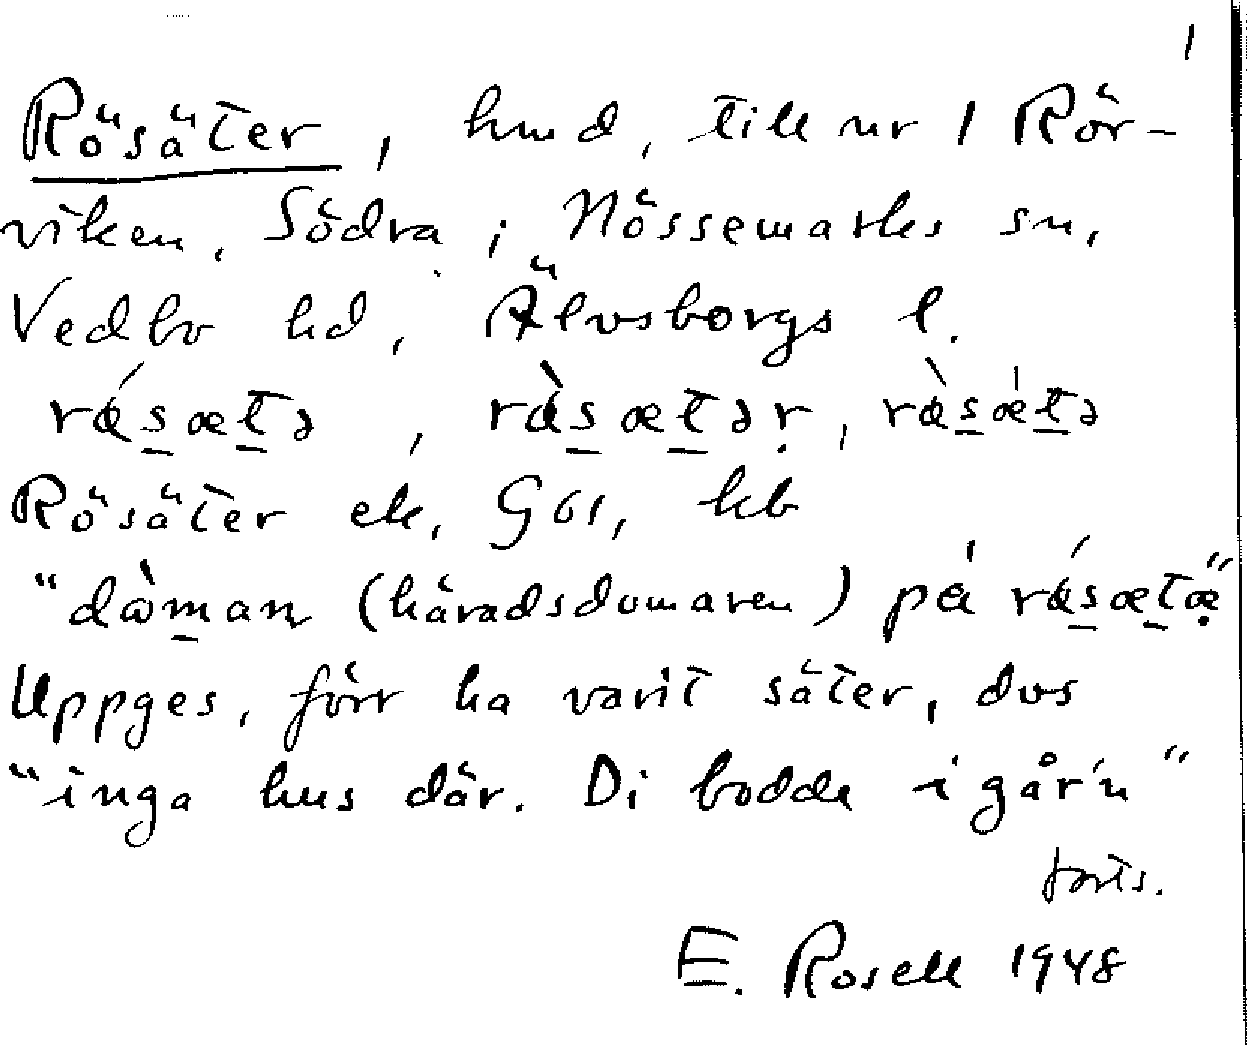 1
Rösäter, hmd, till nr 1 Rör-
viken, Södra i Nössemarks sn,
Vedbo hd, Älvsborgs l.
rásætə, ràsætər, ràsǽtə
Rösäter ek, GK, kb
"dòman (häradsdomaren) på rásætæ"
Uppges, förr ha varit säter, dvs
"inga hus där. Di bodde i går'n"
forts.
E. Rosell 1948